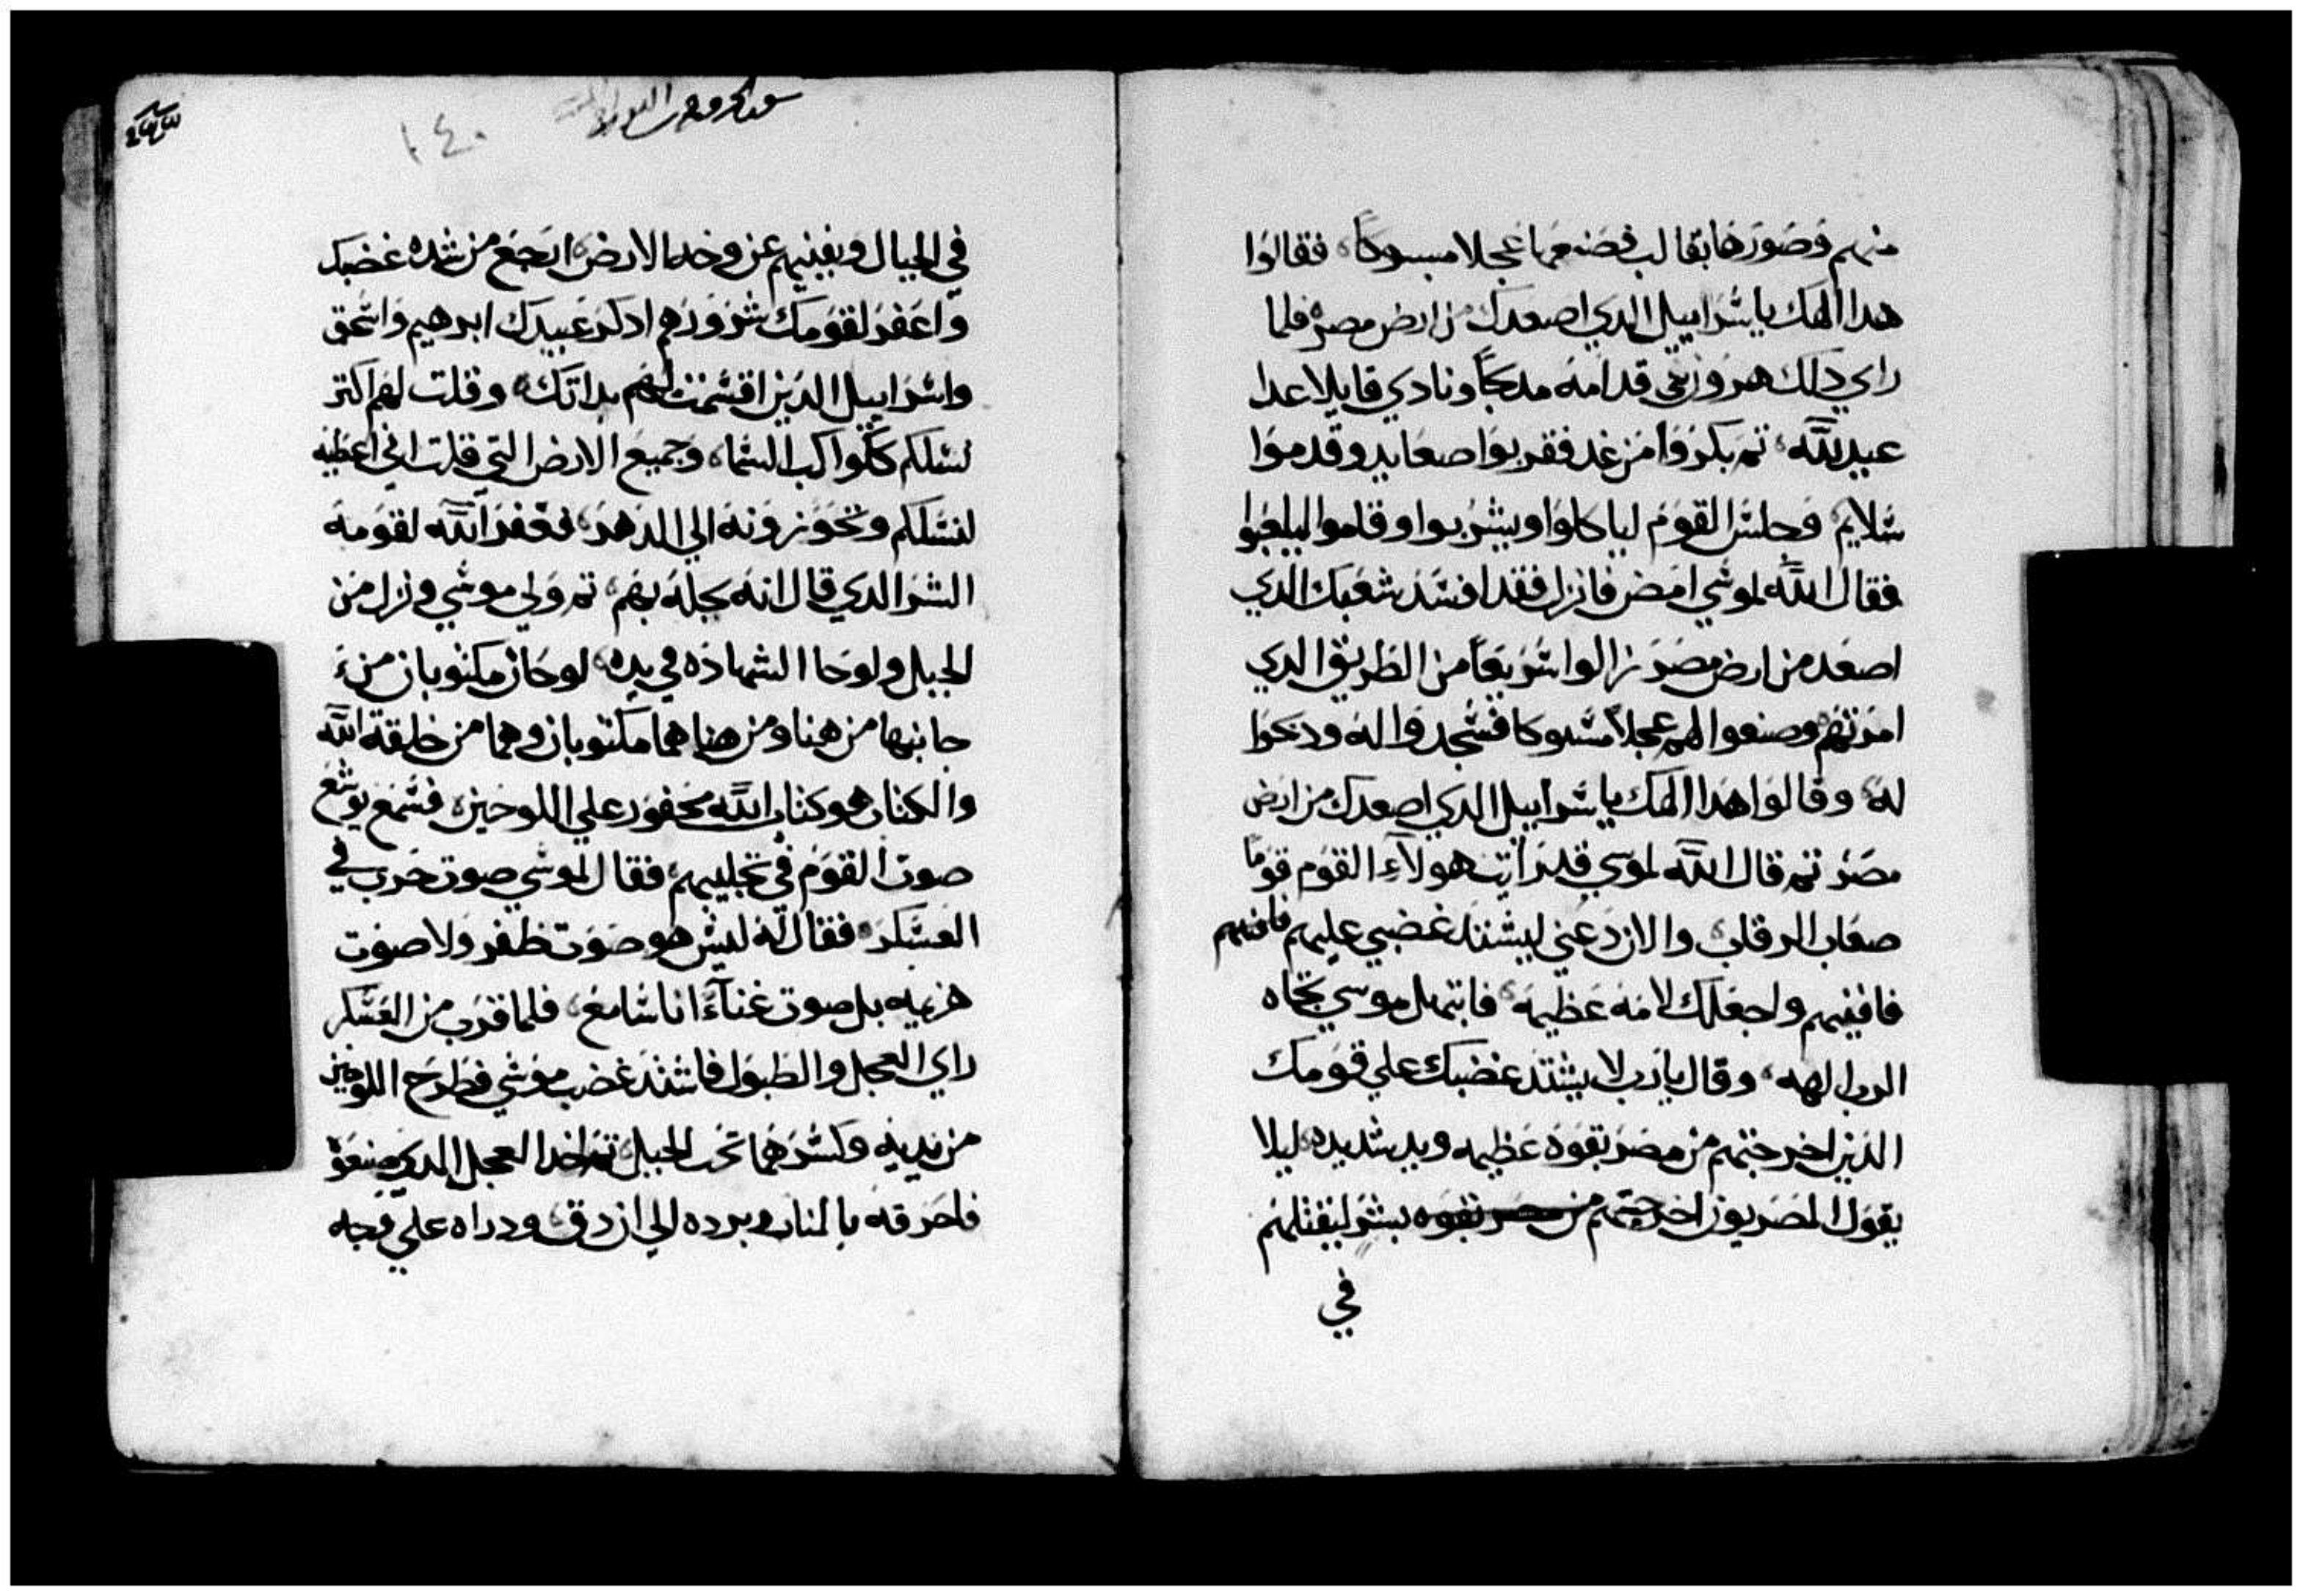 منهم وصورها بقالب فصنعها عجلا مسبوكاً فقالوا
هدا الهك ياسراييل الدي اصعدك من ارض مصر فلما
راي دلك هرون بني قدامه مدبحاً ونادي قايلا غدا
عيد لله، تم بكروا من غد فقربوا صعايد وقدموا
سلايم، وجلس القوم لياكلوا ويشربوا وقاموا ليلعبوا
فقال الله لموسي امض فانزل فقد افسد شعبك الدي
اصعد من ارض مصر زالوا سريعاً من الطريق الدي
امرتهم وصنعوا لهم عجلاً مسبوكا فسجدوا له ودبحوا
له، وقالوا هدا الهك ياسراييل الدي اصعدك من ارض
مصر تم قال الله لموسي قد رايت هولاء القوم قوماً
صعاب الرقاب، والان دعني ليشتد غضبي عليهم فافنيهم
فافنيهم واجعلك لامه عظيمه، فابتهل موسي تجاه
الرب الهه، وقال يارب لا يشتد غضبك علي قومك
الدين اخرجتهم من مصر بقوه عظيمه ويد شديده، ليلا
يقول المصريون اخرجتهم من مصر بقوه بشر ليقتلهم
في
١٤٠
في الجبال ويفنيهم عن وجه الارض، ارجع من شده غضبك
واغفر لقومك شرورهم ادكر عبيدك ابرهيم واسحق
واسراييل الدين اقسمت لهم بداتك، وقلت لهم اكتر
نسلكم ككواكب السما، وجميع الارض التي قلت اني اعطيه
لنسلكم وتحوزونه الي الدهر، فغفر الله لقومه
الشر الدي قال انه يحله بهم، تم ولي موسي ونزل من
الجبل ولوحا الشهاده في يده، لوحان مكتوبان من
جانبيهما من هنا ومن هنا هما مكتوبان وهما من خليقة الله
والكتاب هو كتاب الله محفور علي اللوحين، فسمع يوشع
صوت القوم في تجليبهم، فقال لموسي صوت حرب في
العسكر، فقال له ليس هو صوت ظفر ولا صوت
هزيمه بل صوت غناءً انا سامع، فلما قرب من العسكر
راي العجل والطبول فاشتد غضب موسي فطرح اللوحين
من يديه وكسرهما تحت الجبل، تم اخد العجل الدي صنعوة
فاحرقه بالنار وبرده الي ان دق، ودراه علي وجه